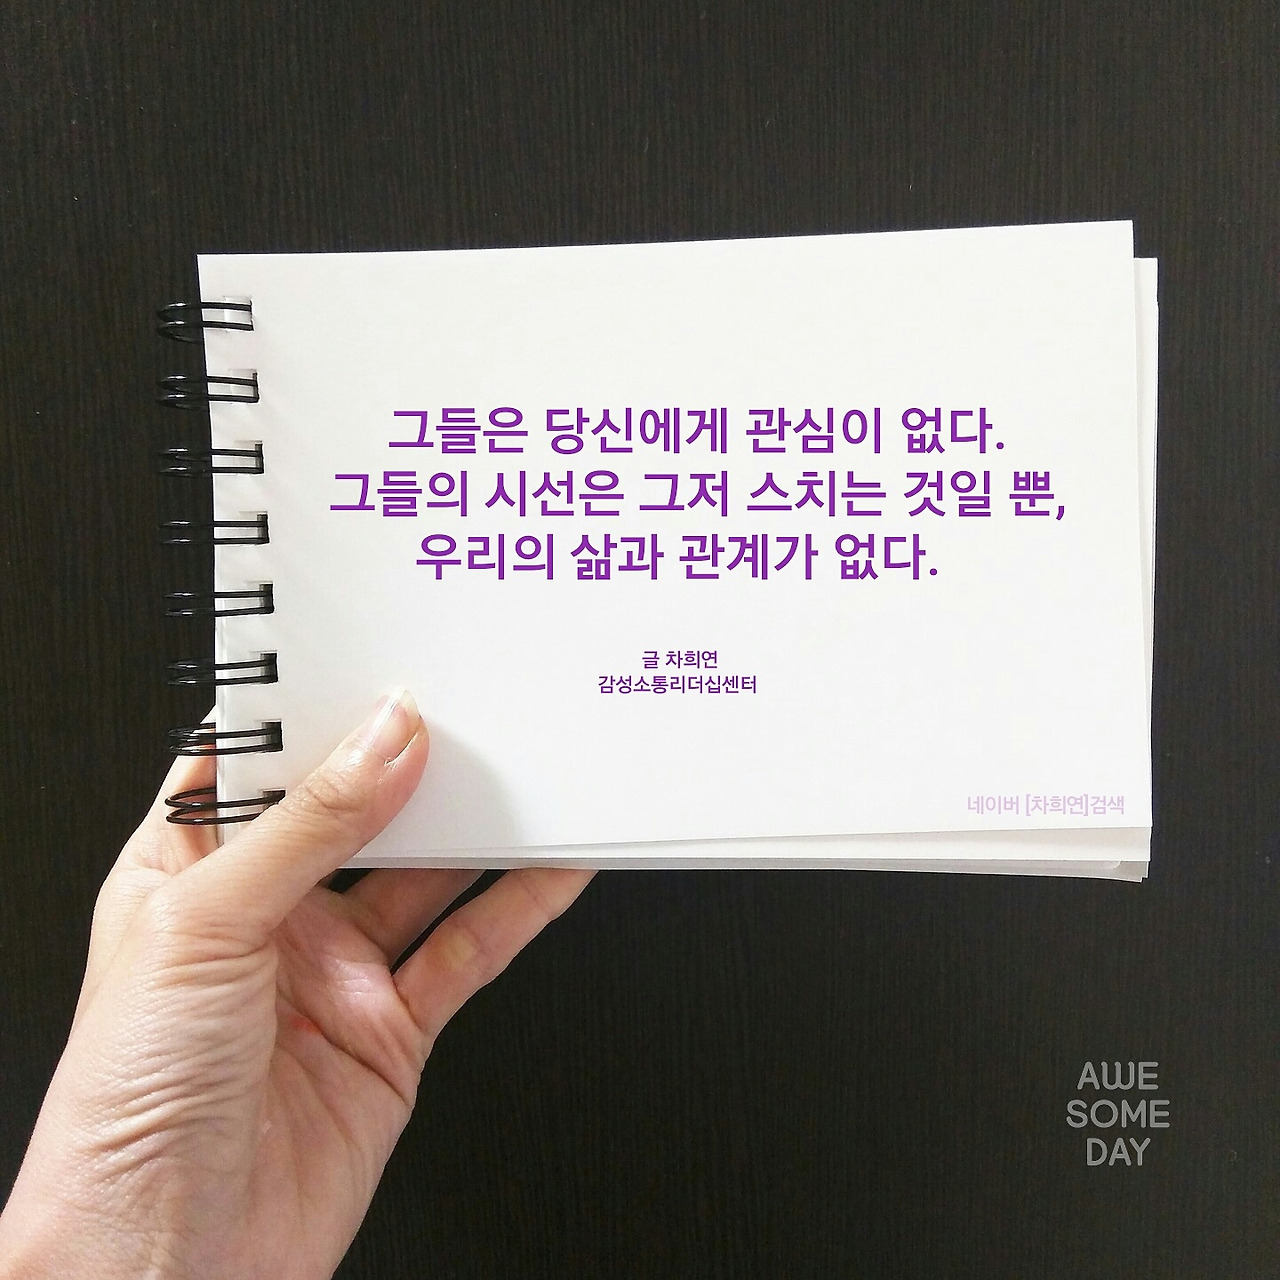 그들은 당신에게 관심이 없다.
그들의 시선은 그저 스치는 것일 뿐,
우리의 삶과 관계가 없다.
글 차희연
감성소통리더십센터
네이버 [차희연]검색
AWE
SOME
DAY